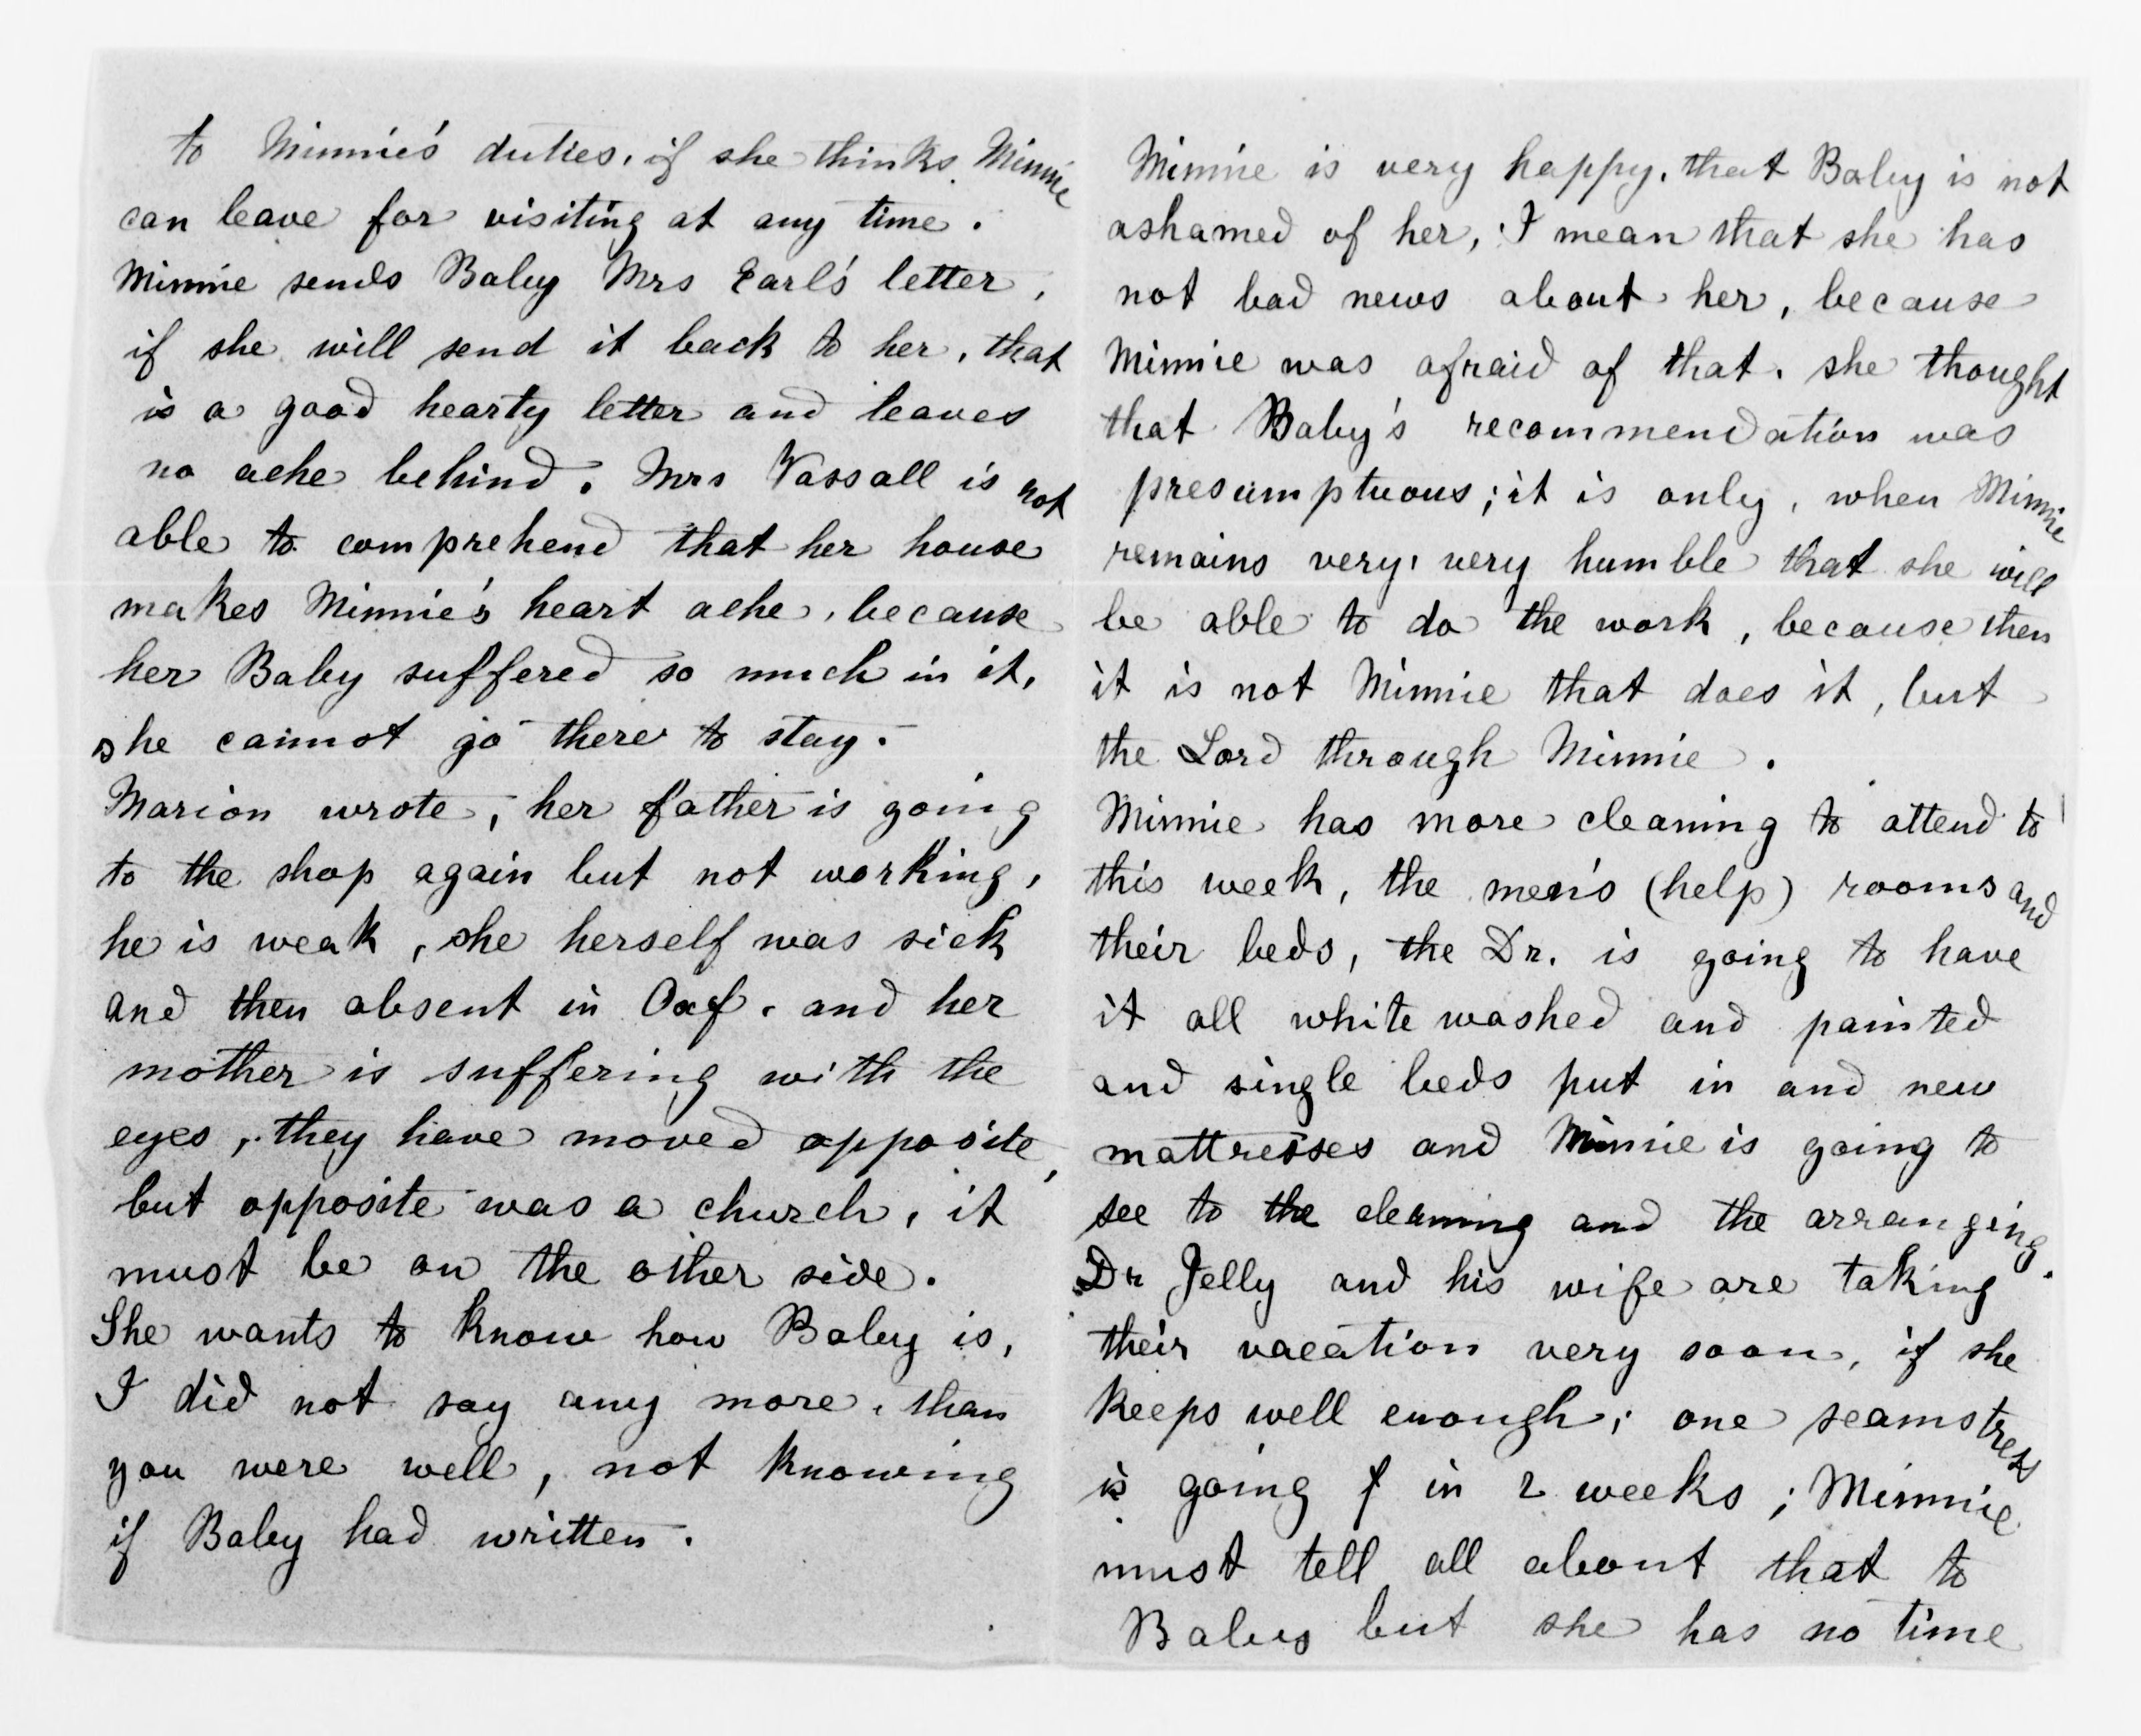 to Minnie's duties, if she thinks Minnie
can leave for visiting at any time.
Minnie sends Baby Mrs Earl's letter,
if she will send it back to her, that
is a good hearty letter and leaves
no ache behind. Mrs Vassall is not
able to comprehend that her house
makes Minnie's heart ache, because
her Baby suffered so much in it,
she cannot go there to stay.
Marion wrote, her father is going
to the shop again but not working,
he is weak, she herself was sick
and then absent in and her
mother is suffering with the
eyes, they have moved opposite,
but opposite was a church, it
must be on the other side.
She wants to know how Baby is,
I did not say any more, than
you were well, not knowing
if Baby had written.
Minnie is very happy, that Baby is not
ashamed of her, I mean that she has
not bad news about her, because
Minnie was afraid of that. she thought
that Baby's recommendation was
presumptuous; it is only, when Minnie
remains very, very humble that she will
be able to do the work, because then
it is not Minnie that does it, but
the Lord through Minnie.
Minnie has more cleaning to attend to
this week, the men's (help) rooms and
their beds, the Dr. is going to have
it all white washed and painted
and single beds put in and new
mattresses and Minnie is going to
see to the cleaning and the arranging.
Dr Jelly and his wife are taking
their vacation very soon, if she
keeps well enough; one seamstress
is going in 2 weeks; Minnie
must tell all about that to
Baby but she has no time